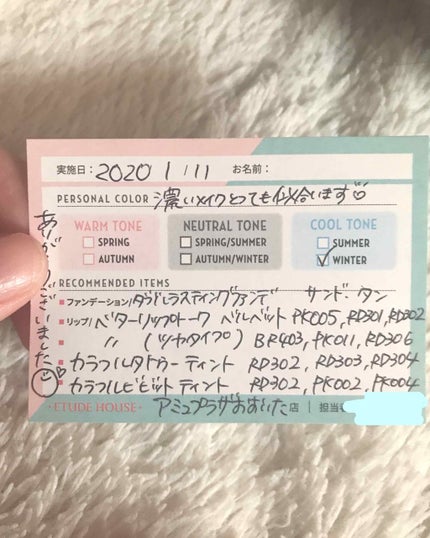 実施日：2020 1/11 お名前：
PERSONAL COLOR 濃いメイクとっても似合います
WARM TONE
SPRING
AUTUMN
NEUTRAL TONE
SPRING/SUMMER
AUTUMN/WINTER
COOL TONE
SUMMER
WINTER
ありがとうございました
RECOMMENDED ITEMS
ファンデーション/ダブルラスティングファンデ サンド・タン
リップ/ベターリップトーク ベルベット PK005, RD301, RD302
〃 (ツヤタイプ) BR403, PK011, RD306
カラフルタトゥーティント RD302, RD303, RD304
カラフルビビットティント RD302, PK002, PK004
ETUDE HOUSE アミュプラザおおいた店 | 担当